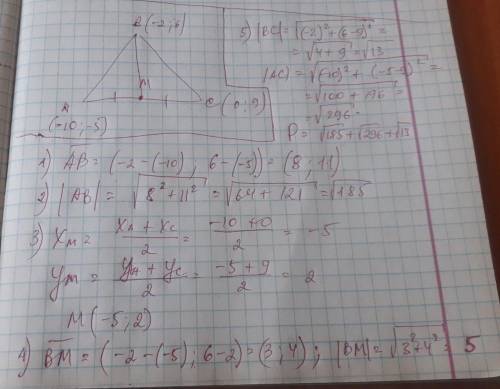 B (-2; 6)
M
A
C (0; 9)
(-10; -5)
5) |BC| = √(-2)² + (6-9)² =
= √4 + 9 = √13
|AC| = √(-10)² + (-5-9)² =
= √100 + 196 =
= √296
P = √185 + √296 + √13
1) AB = (-2 - (-10) ; 6 - (-5)) = (8; 11)
2) |AB| = √8² + 11² = √64 + 121 = √185
3) Xм = XA + Xc / 2 = -10 + 0 / 2 = -5
Yм = YA + Yc / 2 = -5 + 9 / 2 = 2
M (-5; 2)
4) BM = (-2 - (-5); 6 - 2) = (3, 4) ; |BM| = √3² + 4² = 5